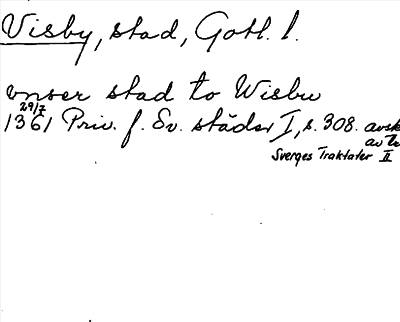 Visby, stad, Gotl. l.
vnser stad to Wisbu
29/7
1361 Priv. f. Sv. städer I, s. 308. avsk
av tr
Sverges Traktater II